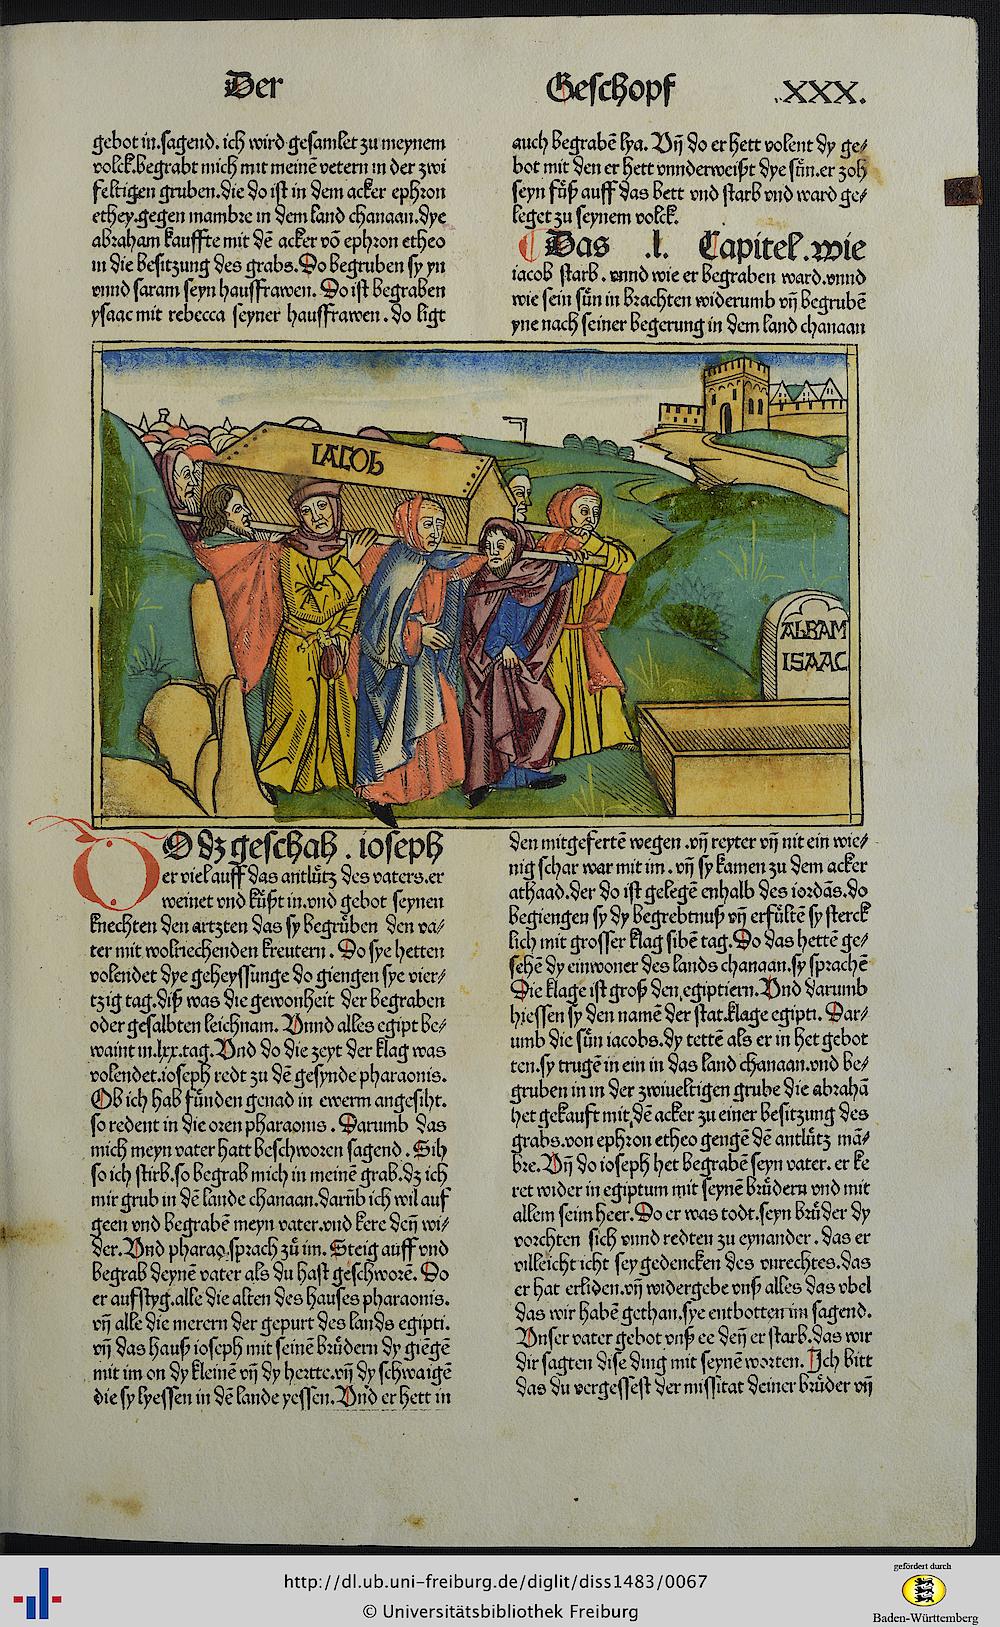 Der
Geschopf
.XXX.
gebot in.sagend. ich wird gesamlet zu meynem
volck.begrabt mich mit meinē vetern in der zwi
feltigen gruben.die do ist in dem acker ephron
ethey.gegen mambre in dem land chanaan.dye
abraham kauffte mit dē acker vō ephron etheo
in die besitzung des grabs.Do begruben sy yn
vnnd saram seyn haußfrawen. Do ist begraben
ysaac mit rebecca seyner haußfrawen. do ligt
auch begrabē lya. Vn̄ do er hett volent dy ge⸗
bot mit den er hett vnnderweißt dye sün.er zoh
seyn füß auff das bett vnd starb vnd ward ge⸗
leget zu seynem volck.
¶ Das .l. Capitel.wie
iacob starb. vnnd wie er begraben ward.vnnd
wie sein sün in brachten widerumb vn̄ begrubē
yne nach seiner begerung in dem land chanaan
IACOb
ABRAM
ISAAC
DO dz geschah. ioseph
er viel auff das antlütz des vaters.er
weinet vnd küßt in.vnd gebot seynen
knechten den artzten das sy begrüben den va⸗
ter mit wolriechenden kreutern. Do sye hetten
volendet dye geheyssunge do giengen sye vier⸗
tzig tag.diß was die gewonheit der begraben
oder gesalbten leichnam. Vnnd alles egipt be⸗
waint in.lxx.tag.Vnd do die zeyt der klag was
volendet.ioseph redt zu dē gesynde pharaonis.
Ob ich hab fünden genad in ewerm angesiht.
so redent in die oren pharaonis. Darumb das
mich meyn vater hatt beschworen sagend. Sih
so ich stirb.so begrab mich in meinē grab.dz ich
mir grub in dē lande chanaan.darūb ich wil auf
geen vnd begrabē meyn vater.vnd kere den̄ wi⸗
der.Vnd pharao.sprach zů im. Steig auff vnd
begrab deynē vater als du hast geschworē. Do
er aufstyg.alle die alten des hauses pharaonis.
vn̄ alle die merern der gepurt des lands egipti.
vn̄ das hauß ioseph mit seinē brüdern dy giēgē
mit im on dy kleinē vn̄ dy hertte.vn̄ dy schwaigē
die sy lyessen in dē lande yessen.Vnd er hett in
den mitgefertē wegen.vn̄ reyter vn̄ nit ein wie⸗
nig schar war mit im. vn̄ sy kamen zu dem acker
athaad.der do ist gelegē enhalb des iordās.do
begiengen sy dy begrebtnuß vn̄ erfültē sy sterck
lich mit grosser klag sibē tag.Do das hettē ge⸗
sehē dy einwoner des lands chanaan.sy sprachē
Die klage ist groß den egiptiern.Vnd darumb
hiessen sy den namē der stat.klage egipti. Dar⸗
umb die sün iacobs.dy tettē als er in het gebot
ten.sy trugē in ein in das land chanaan.vnd be⸗
gruben in in der zwiueltigen grube die abrahā
het gekauft mit dē acker zu einer besitzung des
grabs.von ephron etheo gengē dē antlütz mā⸗
bre.Vn̄ do ioseph het begrabē seyn vater. er ke
ret wider in egiptum mit seynē brüdern vnd mit
allem seim heer.Do er was todt.seyn brüder dy
vorchten sich vnnd redten zu eynander. das er
villeicht icht sey gedencken des vnrechtes.das
er hat erliden.vn̄ widergebe vnß alles das vbel
das wir habē gethan.sye entbotten im sagend.
Vnser vater gebot vnß ee den̄ er starb.das wir
dir sagten dise ding mit seynē worten. Ich bitt
das du vergessest der missitat deiner brüder vn̄
http://dl.ub.uni-freiburg.de/diglit/diss1483/0067
© Universitätsbibliothek Freiburg
gefördert durch
Baden-Württemberg